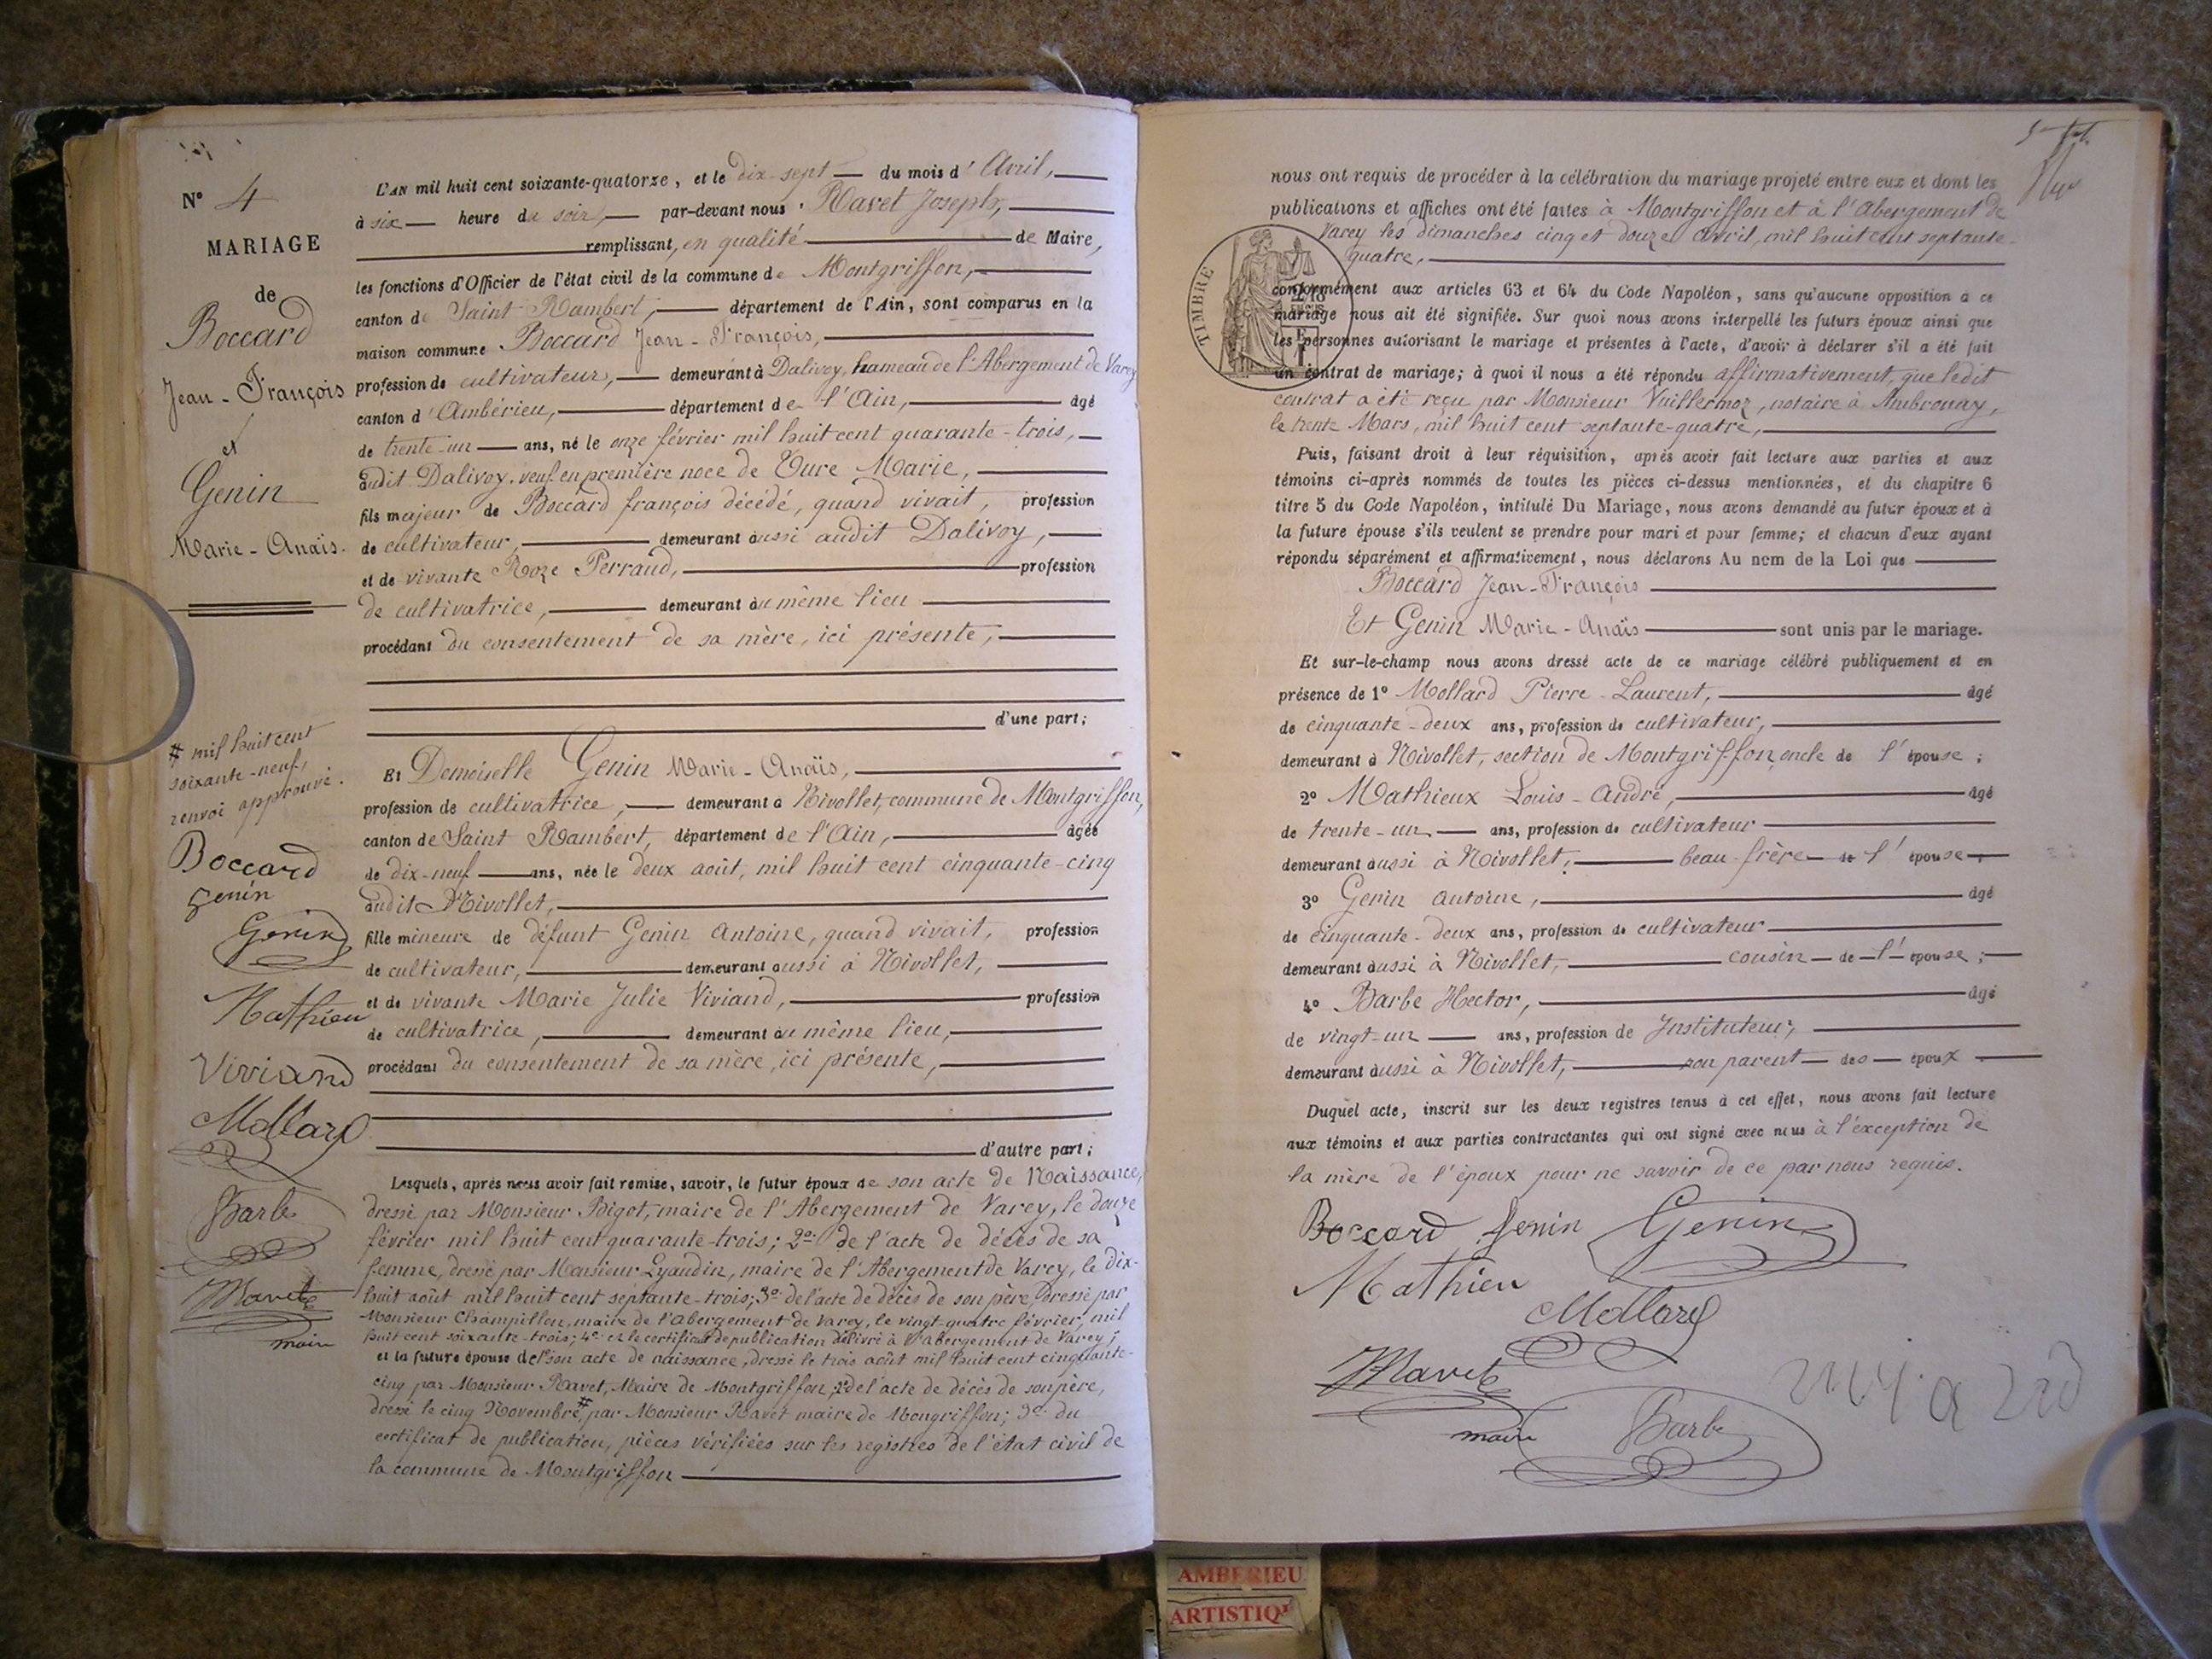 N° 4
MARIAGE
de
Boccard
Jean-François
et
Genin
Marie-Anaïs.
# mil huit cent
soixante-neuf,
renvoi approuvé.
Boccard
Genin
Genin
Mathieu
Viviand
Mollard
Barbe
Ravet
maire
L'AN mil huit cent soixante-quatorze, et le dix-sept du mois d'Avril,
à six heure du soir, par-devant nous Ravet Joseph,
remplissant, en qualité de Maire,
les fonctions d'Officier de l'état civil de la commune de Montgriffon,
canton de Saint-Rambert, département de l'Ain, sont comparus en la
maison commune Boccard Jean-François,
profession de cultivateur, demeurant à Dalivoy, hameau de l'Abergement de Varey
canton d'Ambérieu, département de l'Ain, âgé
de trente-un ans, né le onze février mil huit cent quarante-trois,
audit Dalivoy, veuf en première noce de Cure Marie,
fils majeur de Boccard françois décédé, quand vivait, profession
de cultivateur, demeurant aussi audit Dalivoy,
et de vivante Roze Perraud, profession
de cultivatrice, demeurant au même lieu
procédant du consentement de sa mère, ici présente,
d'une part;
Et Demoiselle Genin Marie-Anaïs,
profession de cultivatrice, demeurant à Nivollet, commune de Montgriffon,
canton de Saint Rambert, département de l'Ain, âgée
de dix-neuf ans, née le deux août, mil huit cent cinquante-cinq
audit Nivollet,
fille mineure de défunt Genin Antoine, quand vivait, profession
de cultivateur, demeurant aussi à Nivollet,
et de vivante Marie Julie Viviand, profession
de cultivatrice, demeurant au même lieu,
procédant du consentement de sa mère, ici présente,
d'autre part;
Lesquels, après nous avoir fait remise, savoir, le futur époux de son acte de Naissance,
dressé par Monsieur Bigot, maire de l'Abergement de Varey, le douze
février mil huit cent quarante-trois; 2° de l'acte de décès de sa
femme, dressé par Monsieur Lyaudin, maire de l'Abergement de Varey, le dix-
huit août mil huit cent septante-trois; 3° de l'acte de décès de son père, dressé par
Monsieur Champillon, maire de l'abergement de Varey, le vingt-quatre février, mil
huit cent soixante-trois; 4° et le certificat de publication délivré à l'abergement de Varey;
et la future épouse de son acte de naissance, dressé le trois août mil huit cent cinquante-
cinq par Monsieur Ravet, Maire de Montgriffon, 2° de l'acte de décès de son père,
dressé le cinq Novembre # par Monsieur Ravet maire de Mongriffon; 3° du
certificat de publication, pièces vérifiées sur les registres de l'état civil de
la commune de Montgriffon
nous ont requis de procéder à la célébration du mariage projeté entre eux et dont les
publications et affiches ont été faites à Montgriffon et à l'Abergement de
Varey les dimanches cinq et douze avril, mil huit cent septante-
quatre,
TIMBRE
conformément aux articles 63 et 64 du Code Napoléon, sans qu'aucune opposition à ce
mariage nous ait été signifiée. Sur quoi nous avons interpellé les futurs époux ainsi que
les personnes autorisant le mariage et présentes à l'acte, d'avoir à déclarer s'il a été fait
un contrat de mariage; à quoi il nous a été répondu affirmativement, que ledit
contrat a été reçu par Monsieur Vuillermoz, notaire à Ambronay,
le trente Mars, mil huit cent septante-quatre,
Puis, faisant droit à leur réquisition, après avoir fait lecture aux parties et aux
témoins ci-après nommés de toutes les pièces ci-dessus mentionnées, et du chapitre 6
titre 5 du Code Napoléon, intitulé Du Mariage, nous avons demandé au futur époux et à
la future épouse s'ils veulent se prendre pour mari et pour femme; et chacun d'eux ayant
répondu séparément et affirmativement, nous déclarons Au nom de la Loi que
Boccard Jean-François
Et Genin Marie-Anaïs sont unis par le mariage.
Et sur-le-champ nous avons dressé acte de ce mariage célébré publiquement et en
présence de 1° Mollard Pierre-Laurent, âgé
de cinquante-deux ans, profession de cultivateur,
demeurant à Nivollet, section de Montgriffon, oncle de l'épouse;
2° Mathieux Louis-André, âgé
de trente-un ans, profession de cultivateur
demeurant aussi à Nivollet, beau-frère de l'épouse,
3° Genin Antoine, âgé
de cinquante-deux ans, profession de cultivateur
demeurant aussi à Nivollet, cousin de l'épouse;
4° Barbe Hector, âgé
de vingt-un ans, profession de Instituteur,
demeurant aussi à Nivollet, non parent des époux
Duquel acte, inscrit sur les deux registres tenus à cet effet, nous avons fait lecture
aux témoins et aux parties contractantes qui ont signé avec nous à l'exception de
la mère de l'époux pour ne savoir de ce par nous requis.
Boccard Genin Genin
Mathieu
Mollard
Ravet
maire
Barbe
AMBERIEU
ARTISTIQ